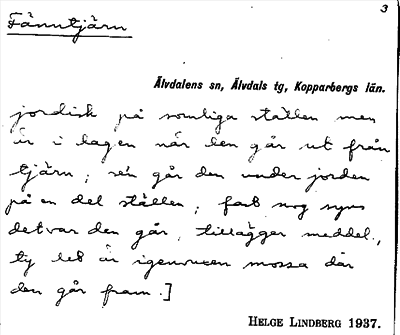 3
Fänntjärn
Älvdalens sn, Älvdals tg, Kopparbergs län.
jordisk på somliga ställen men
är i dagen när den går ut från
tjärn; sen går den under jorden
på en del ställen; fast nog syns
det var den går, tillägger meddel.,
ty det är igenvuxen mossa där
den går fram.]
HELGE LINDBERG 1937.